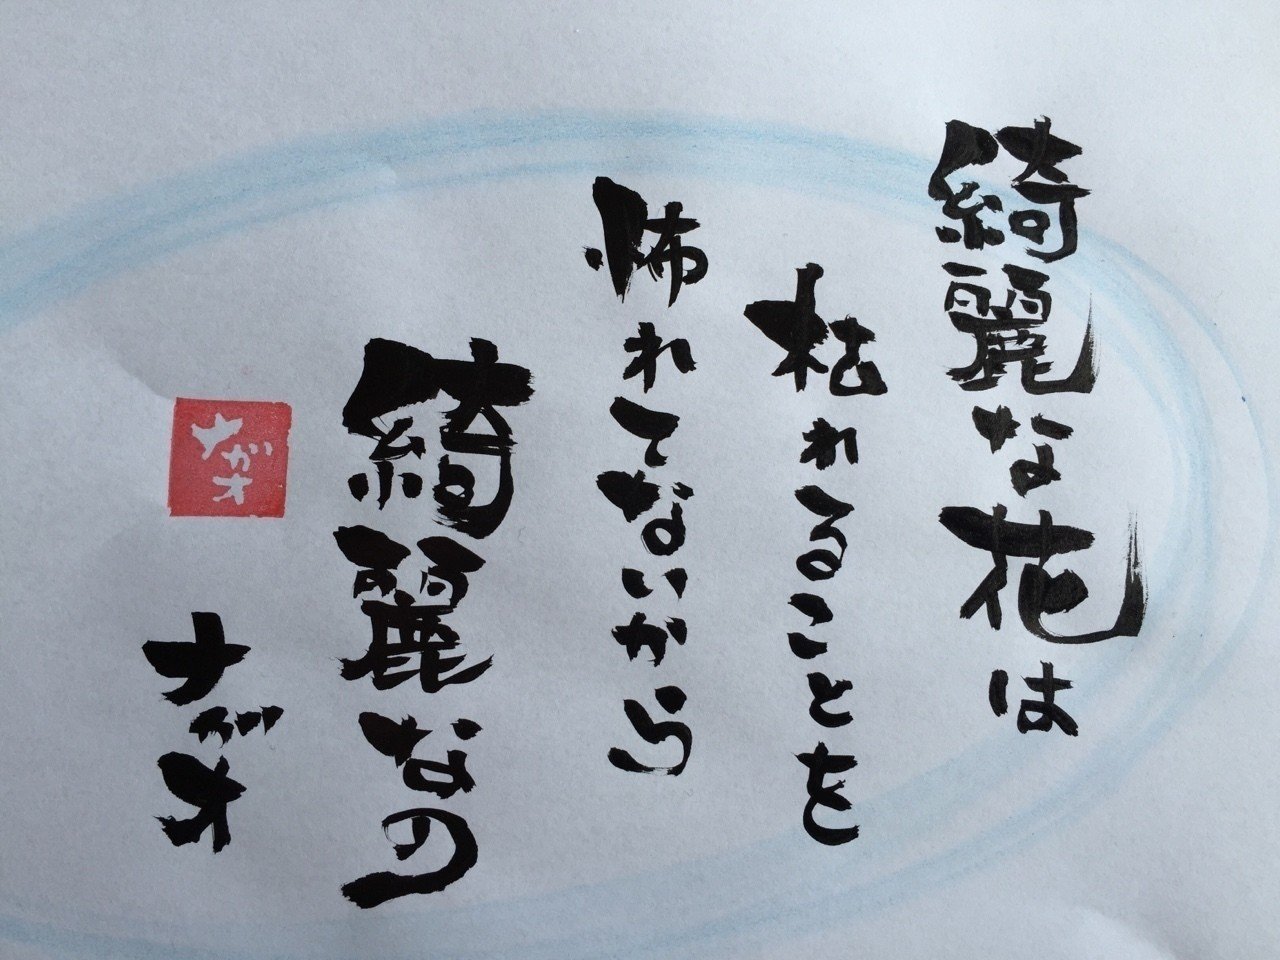 綺麗な花は
枯れることを
怖れてないから
綺麗なの
ナガオ
ナガオ